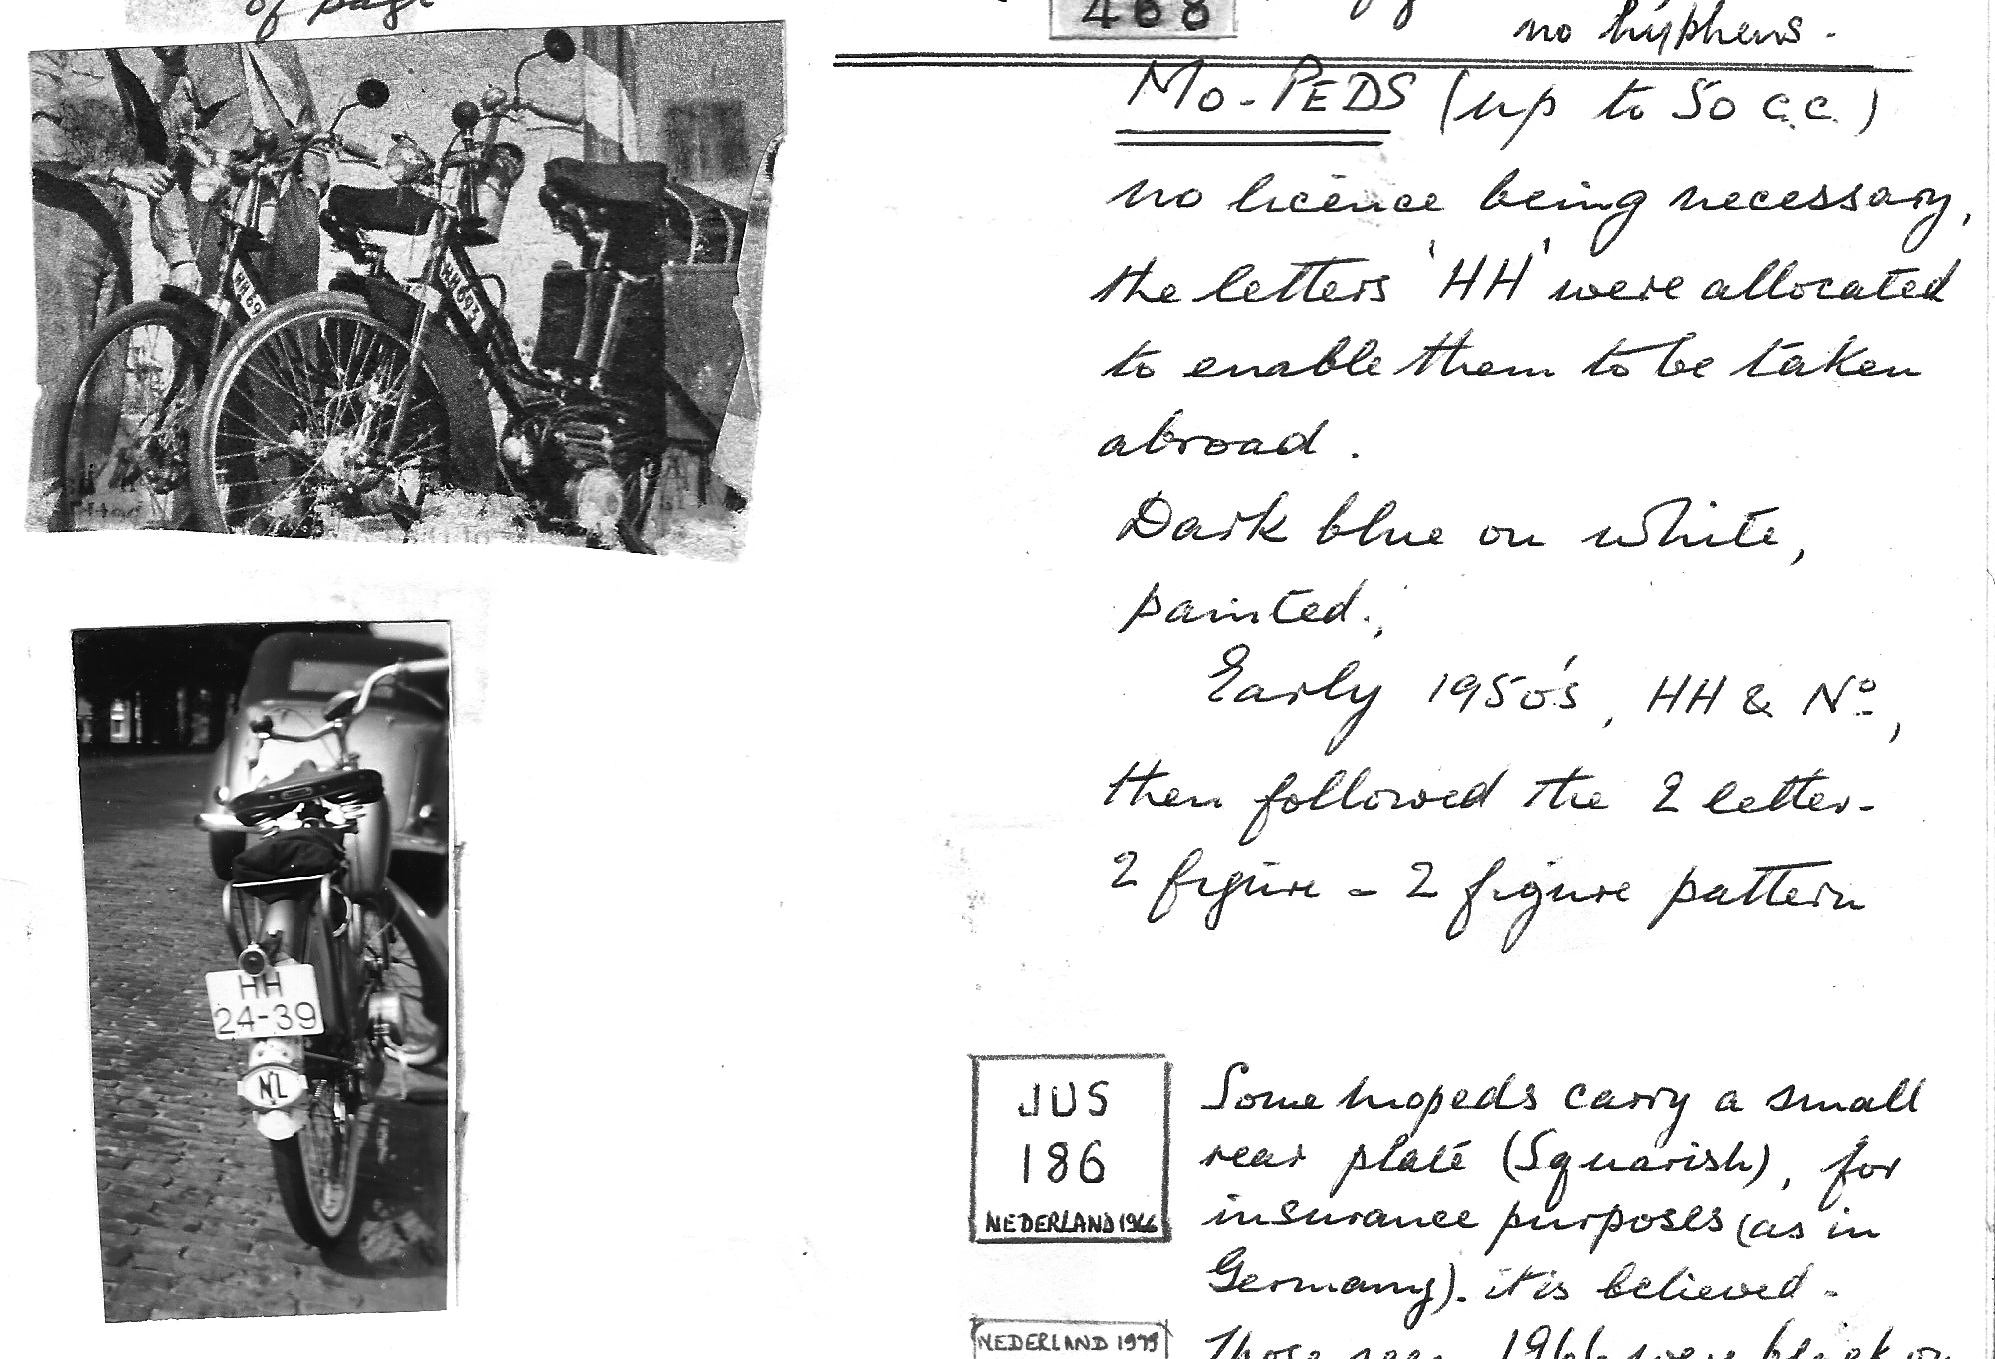 of page
468
no hyphens.
MO-PEDS (up to 50 c.c.)
no licence being necessary,
the letters 'HH' were allocated
to enable them to be taken
abroad.
Dark blue on white,
painted.,
Early 1950's, HH & Nº,
then followed the 2 letter-
2 figure - 2 figure pattern
HH 69
HH 693
HH
24-39
NL
JUS
186
NEDERLAND 1966
Some mopeds carry a small
rear plate (Squarish), for
insurance purposes (as in
Germany). it is believed -
NEDERLAND 1979
Those seen 1966 were black on